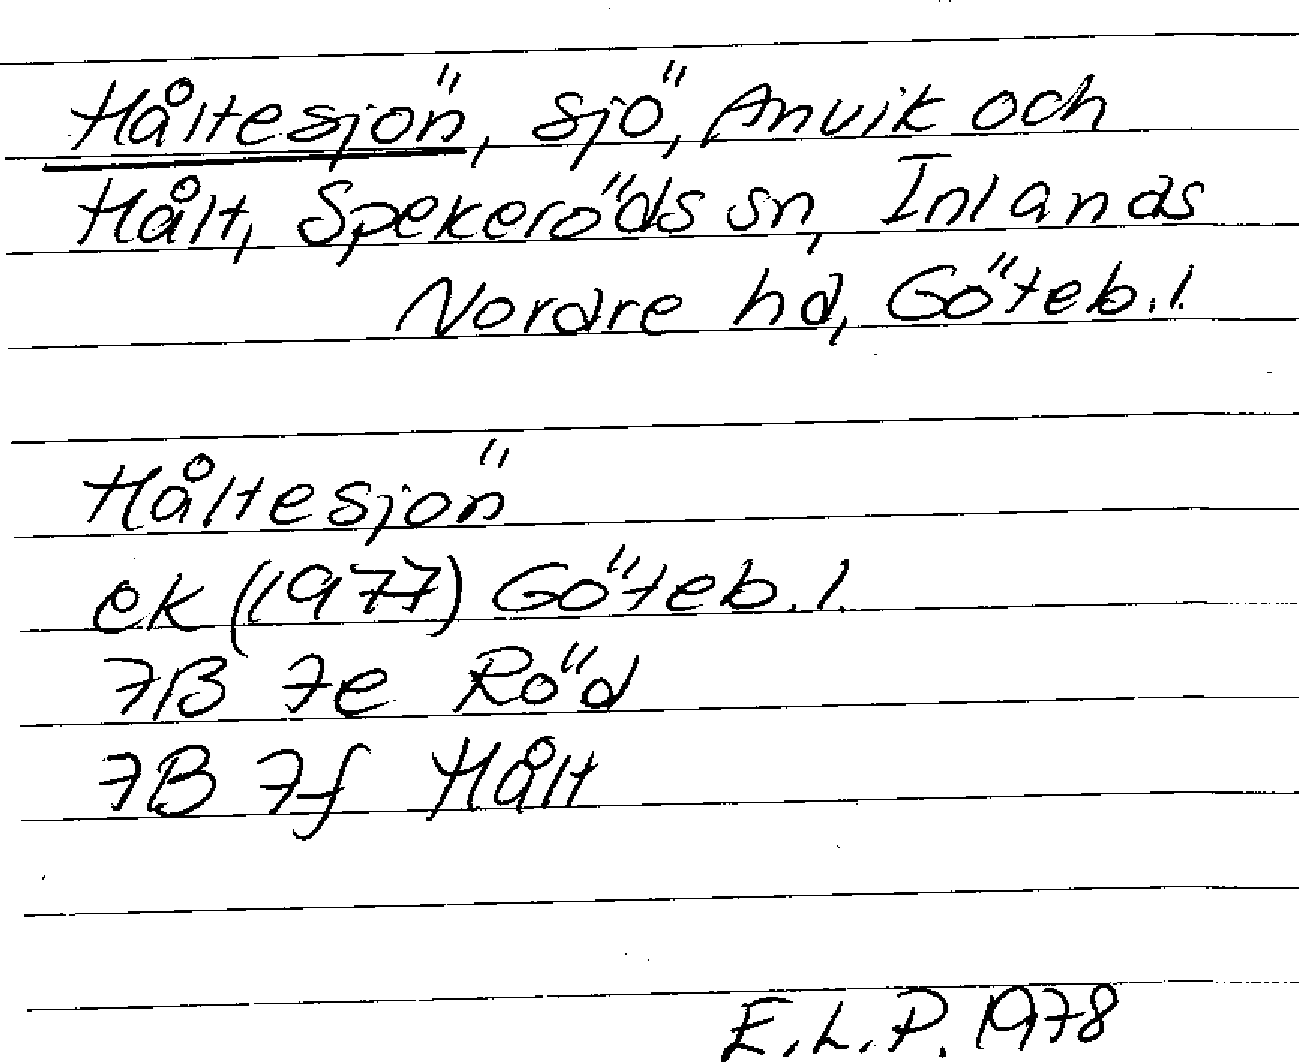 Håltesjön, sjö, Anvik och
Hålt, Spekeröds sn, Inlands
Nordre hd, Göteb.l.
Håltesjön
ek (1977) Göteb.l.
7B 7e Röd
7B 7f Hålt
E.L.P. 1978